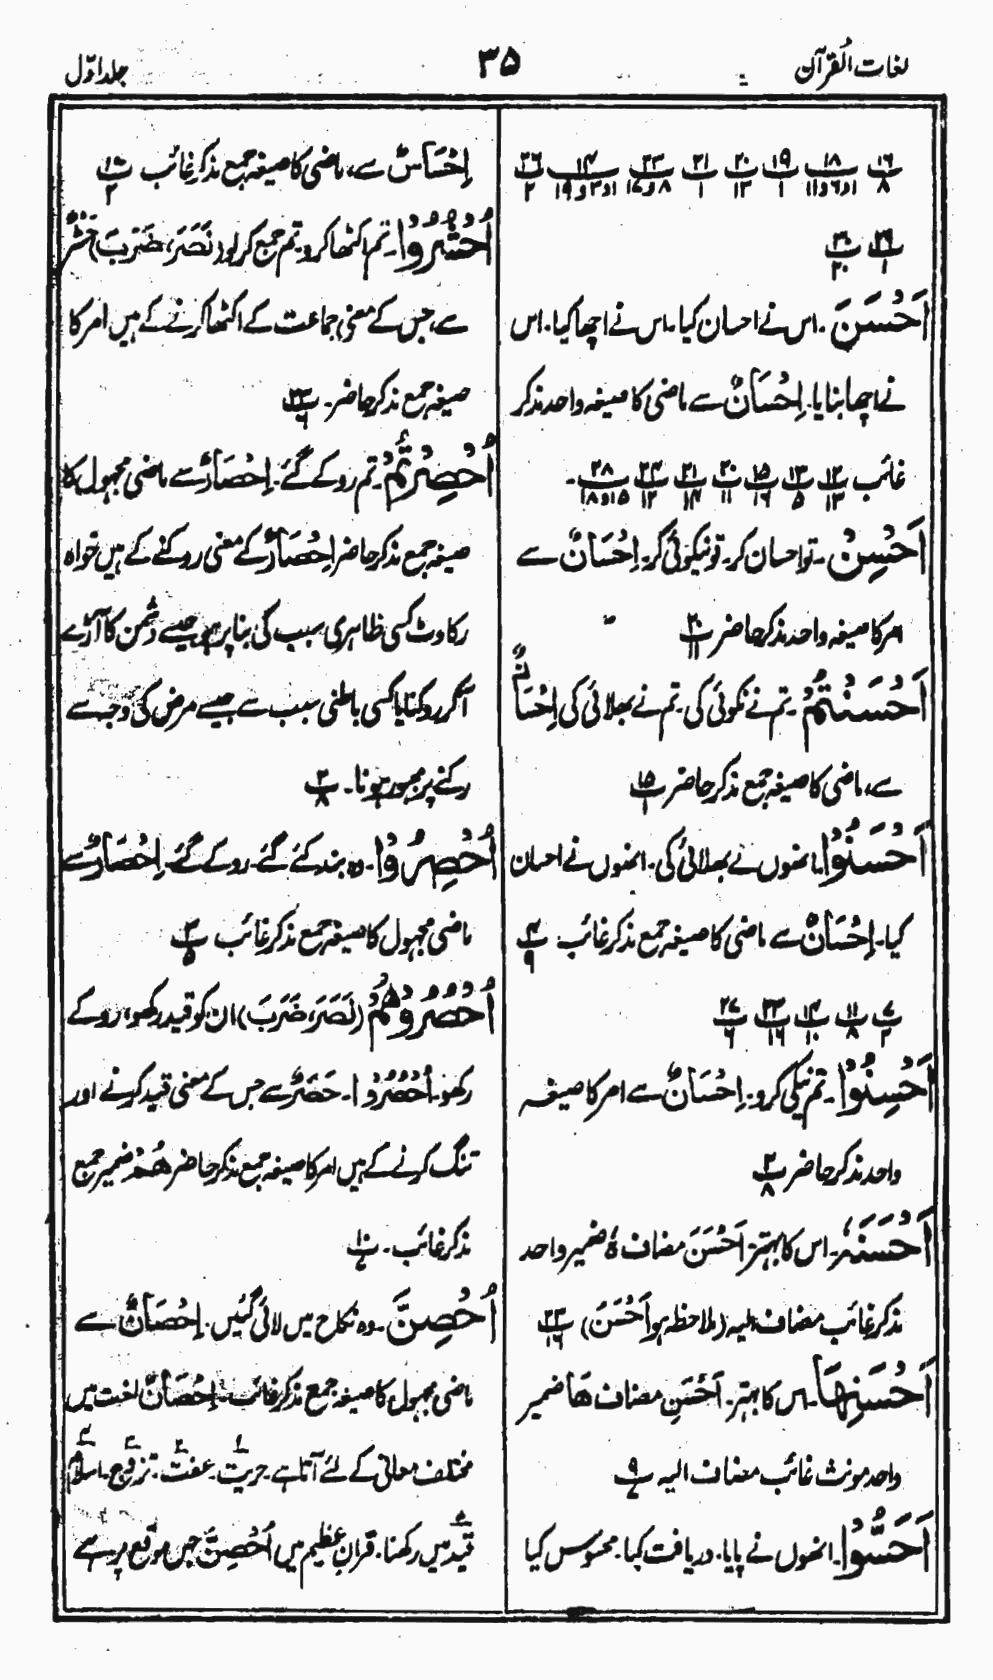 لغات القرآن
۳۵
جلد اوّل
۱۶/۸ ۱۸/۱و۶و۱۱ ۱۹/۱ ۲۰/۱۲ ۲۱/۱ ۲۳/۸و۱۷ ۲۴/۱و۳و۱۹ ۲۶/۲
۲۹/۱ ۳۰/۲۰
اَحْسَنَ ۔ اس نے احسان کیا۔ اس نے اچھا کیا۔ اس
نے اچھا بنایا۔ اِحْسَانٌ سے ماضی کا صیغہ واحد مذکر
غائب ۱۲/۱۳ ۱۳/۵ ۱۵/۱۶ ۲۰/۱۱ ۲۱/۱۴ ۲۴/۱۲ ۲۸/۱۵و۱۸ ۔
اَحْسِنْ ۔ تو احسان کر۔ تو نیکوئی کر۔ اِحْسَانٌ سے
امر کا صیغہ واحد مذکر حاضر ۲۰/۱۱
اَحْسَنْتُمْ ۔ تم نے نکوئی کی۔ تم نے بھلائی کی اِحْسَانٌ
سے، ماضی کا صیغہ جمع مذکر حاضر ۱۵/۱
اَحْسَنُوْا ۔ انھوں نے بھلائی کی۔ انھوں نے احسان
کیا۔ اِحْسَانٌ سے ماضی کا صیغہ جمع مذکر غائب ۴/۹
۷/۲ ۱۱/۸ ۱۴/۱۰ ۲۳/۱۶ ۲۷/۶
اَحْسِنُوْا ۔ تم نیکی کرو۔ اِحْسَانٌ سے امر کا صیغہ
واحد مذکر حاضر ۲/۸
اَحْسَنَہٗ ۔ اس کا بہتر۔ اَحْسَنَ مضاف ہٗ ضمیر واحد
مذکر غائب مضاف الیہ (ملاحظہ ہو اَحْسَنُ) ۲۳/۱۶
اَحْسَنِھَا ۔ اس کا بہتر۔ اَحْسَنِ مضاف ھَا ضمیر
واحد مونث غائب مضاف الیہ ۹/۷
اَحَسُّوْا ۔ انھوں نے پایا۔ دریافت کیا۔ محسوس کیا
اِحْسَاسٌ سے، ماضی کا صیغہ جمع مذکر غائب ۱۷/۲
اُحْشُرُوْا ۔ تم اکٹھا کرو۔ تم جمع کرلو (نَصَرَ، ضَرَبَ) حَشْرٌ
سے، جس کے معنی جماعت کے اکٹھا کرنے کے ہیں امر کا
صیغہ جمع مذکر حاضر ۔ ۲۳/۶
اُحْصِرْتُمْ ۔ تم روکے گئے۔ اِحْصَارٌ سے ماضی مجہول کا
صیغہ جمع مذکر حاضر اِحْصَارٌ کے معنی روکنے کے ہیں خواہ
رکاوٹ کسی ظاہری سبب کی بنا پر ہو جیسے دشمن کا آڑے
آکر روکنا یا کسی باطنی سبب سے جیسے مرض کی وجہ سے
رکنے پر مجبور ہونا۔ ۲/۸
اُحْصِرُوْا ۔ وہ بند کئے گئے۔ روکے گئے۔ اِحْصَارٌ سے
ماضی مجہول کا صیغہ جمع مذکر غائب ۳/۵
اُحْصُرُوْھُمْ (نَصَرَ، ضَرَبَ) ان کو قید رکھو، روکے
رکھو۔ اُحْصُرُوْا ۔ حَصْرٌ سے جس کے معنی قید کرنے اور
تنگ کرنے کے ہیں امر کا صیغہ جمع مذکر حاضر ھُمْ ضمیر جمع
مذکر غائب ۔ ۱۰/۷
اُحْصِنَّ ۔ وہ نکاح میں لائی گئیں۔ اِحْصَانٌ سے
ماضی مجہول کا صیغہ جمع مذکر غائب۔ اِحْصَانٌ لغت میں
مختلف معانی کے لئے آتا ہے۔ حریت۔ عفت۔ تزوج۔ اسلام
قید میں رکھنا۔ قرآنِ عظیم میں اُحْصِنَّ جس موقع پر ہے